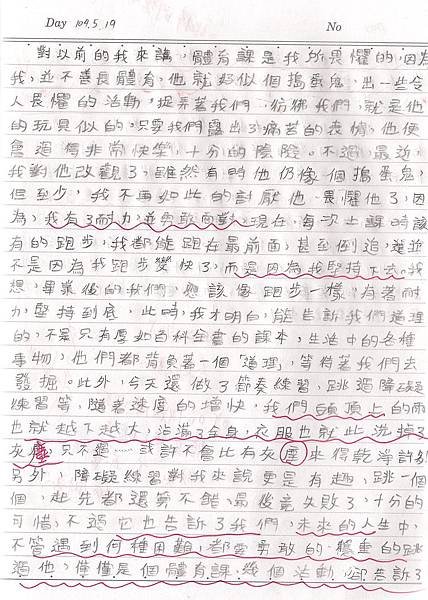 Day 104.5.19 No
對以前的我來講，體育課是我所畏懼的，因為
我，並不善長體育，他就好似個搗蛋鬼，出一些令
人畏懼的活動，捉弄著我們，彷彿我們，就是他
的玩具似的，只要我們露出了痛苦的表情，他便
會過得非常快樂，十分的陰險。不過，最近，
我對他改觀了，雖然有時他仍像個搗蛋鬼，
但至少，我不再如此的討厭他、畏懼他了，因
為，我有了耐力，並勇敢面對。現在，每次上課時該
有的跑步，我都能跑在最前面，甚至倒追，這並
不是因為我跑步變快了，而是因為我堅持下去。我
想，畢業後的我們，應該像跑步一樣，有著耐
力，堅持到底，此時，我才明白，能告訴我們道理
的，不是只有厚如百科全書的課本，生活中的各種
事物，他們都背負著一個「道理」，等待著我們去
發掘。此外，今天還做了節奏練習、跳過障礙
練習等，隨著速度的增快，我們頭頂上的雨
也就越下越大，沾滿了全身，衣服也就此洗掉了
灰塵，只不過……或許不會比有灰塵來得乾淨許多
另外，障礙練習對我來說更是有趣，跳一個
個，起先都還算不錯，最後竟失敗了，十分的
可惜，不過它也告訴了我們，未來的人生中，
不管遇到何種困難，都要勇敢的、慎重的跳
過他，僅僅是個體育課，幾個活動，卻告訴了